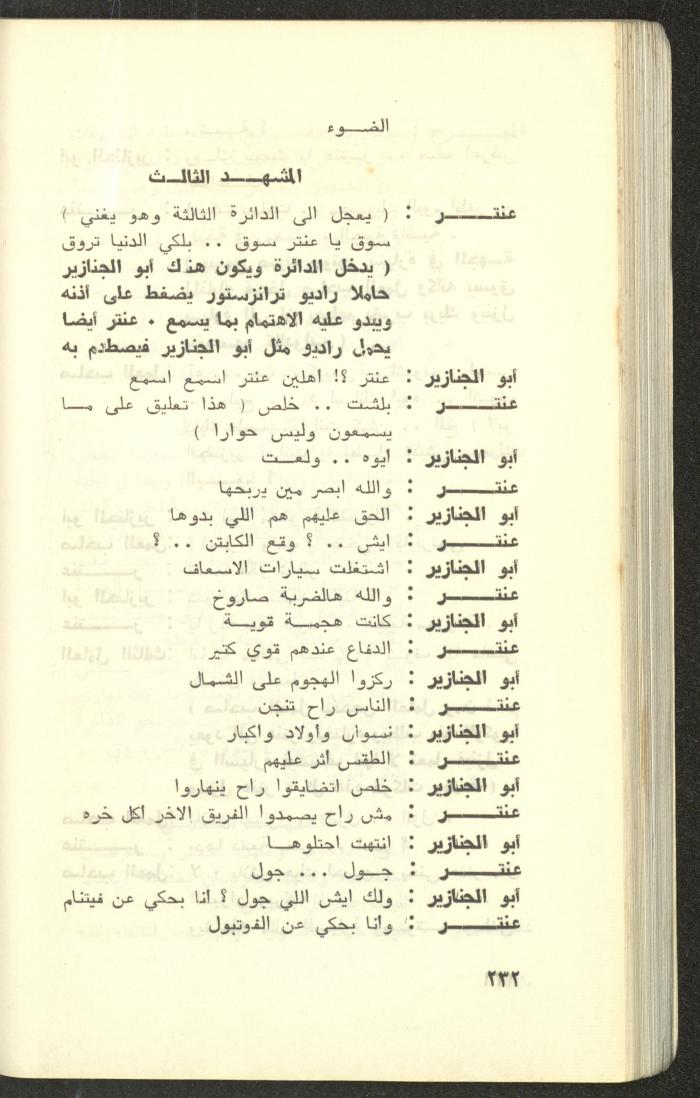 الضوء
المشهد الثالث
عنتر : ( يعجل الى الدائرة الثالثة وهو يغني )
سوق يا عنتر سوق .. بلكي الدنيا تروق
( يدخل الدائرة ويكون هناك أبو الجنازير
حاملا راديو ترانزستور يضغط على أذنه
ويبدو عليه الاهتمام بما يسمع . عنتر أيضا
يحمل راديو مثل أبو الجنازير فيصطدم به
أبو الجنازير : عنتر ؟! اهلين عنتر اسمع اسمع
عنتر : بلشت .. خلص ( هذا تعليق على ما
يسمعون وليس حوارا )
أبو الجنازير : ايوه .. ولعت
عنتر : والله ابصر مين يربحها
أبو الجنازير : الحق عليهم هم اللي بدوها
عنتر : ايش .. ؟ وقع الكابتن .. ؟
أبو الجنازير : اشتغلت سيارات الاسعاف
عنتر : والله هالضربة صاروخ
أبو الجنازير : كانت هجمة قوية
عنتر : الدفاع عندهم قوي كتير
أبو الجنازير : ركزوا الهجوم على الشمال
عنتر : الناس راح تنجن
أبو الجنازير : نسوان وأولاد واكبار
عنتر : الطقس اثر عليهم
أبو الجنازير : خلص اتضايقوا راح ينهاروا
عنتر : مش راح يصمدوا الفريق الاخر اكل خره
أبو الجنازير : انتهت احتلوها
عنتر : جول ... جول
أبو الجنازير : ولك ايش اللي جول ؟ انا بحكي عن فيتنام
عنتر : وانا بحكي عن الفوتبول
٢٣٢